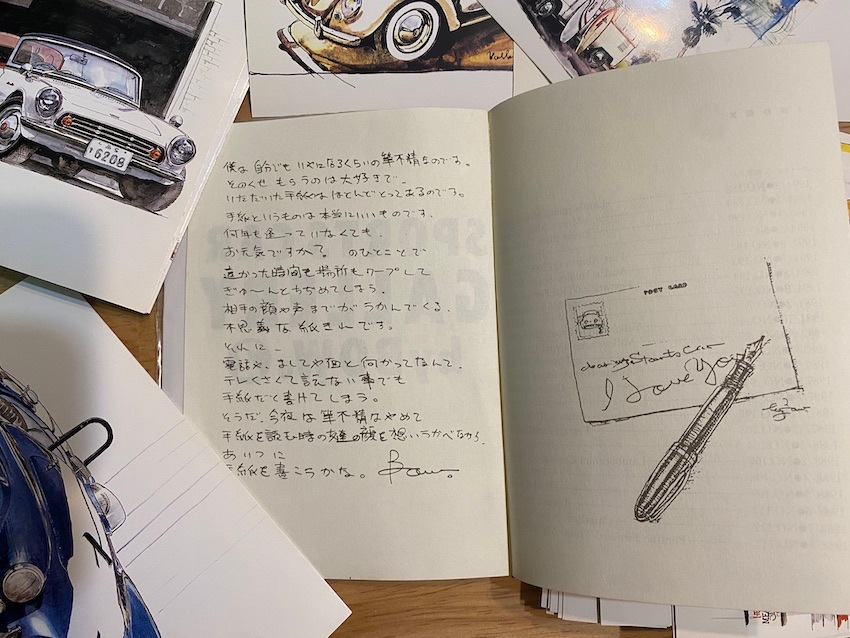 6208
僕は自分でもいやになるくらいの筆不精なのです。
そのくせもらうのは大好きで、
いただいた手紙はほとんどとってあるのです。
手紙というものは本当にいいものです。
何年も逢っていなくても、
お元気ですか? のひとことで
遠かった時間も場所もワープして
ぎゅ〜んとちぢめてしまう。
相手の顔や声までがうかんでくる。
不思義な紙きれです。
それに、
電話や、ましてや面と向かってなんて、
テレくさくて言えない事でも
手紙だと書けてしまう。
そうだ、今夜は筆不精はやめて
手紙を読む時の顔を想いうかべながら、
あいつに
手紙を書こうかな。 Bow。
POST CARD
dear my Sports Car
I Love You